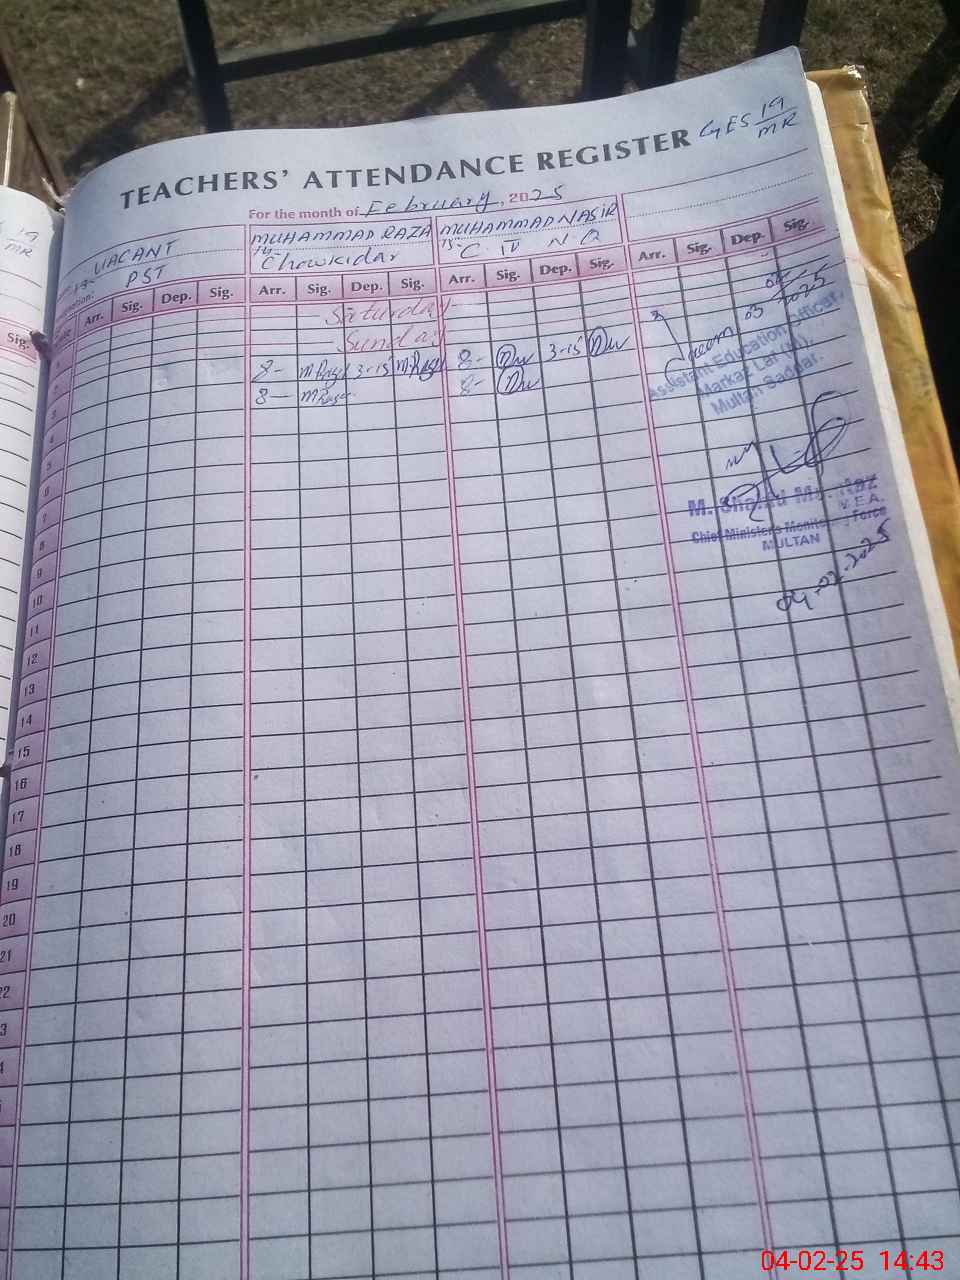 GES 19/MR
TEACHERS' ATTENDANCE REGISTER
For the month of February, 2025
VACANT
MUHAMMAD RAZA
MUHAMMAD NASIR
PST
14- Chowkidar
15- C IV N Q
Arr. Sig. Dep. Sig. Arr. Sig. Dep. Sig. Arr. Sig. Dep. Sig. Arr. Sig. Dep. Sig.
Saturday
Sunday
8- M Raza 3-15 M.Raza 8- 3-15
8- M Raza 8-
Assistant Education Officer,
Markaz Lar (M),
Multan Saddar.
M. Shahid
V.E.A.
Chief Minister's Monitoring Force
MULTAN
04-02-2025
1
2
3
4
5
6
7
8
9
10
11
12
13
14
15
16
17
18
19
20
21
22
3
Sig.
19
MR
04-02-25 14:43